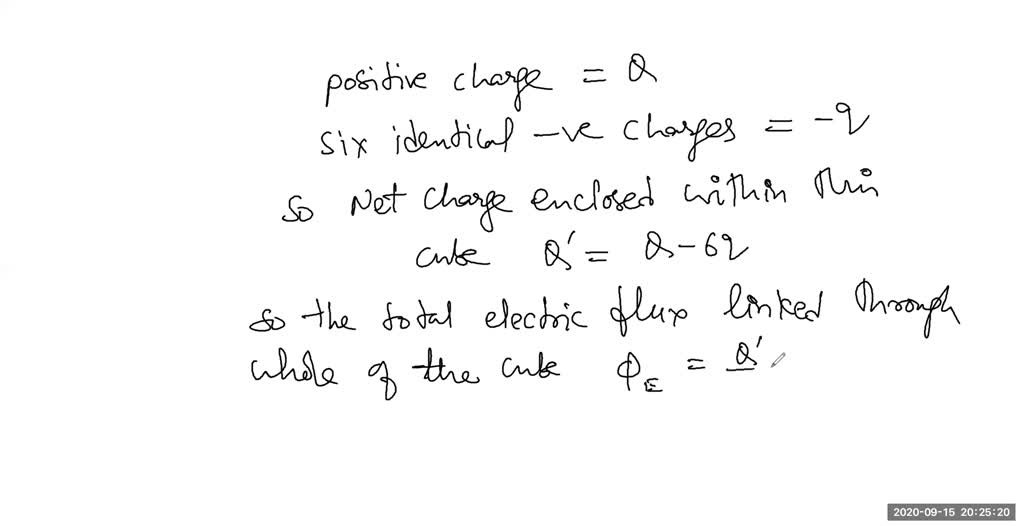 positive charge = Q
six identical -ve charges = -q
so Net charge enclosed within this
cube Q' = Q - 6q
so the total electric flux linked through
whole of the cube ϕE = Q'
2020-09-15 20:25:20